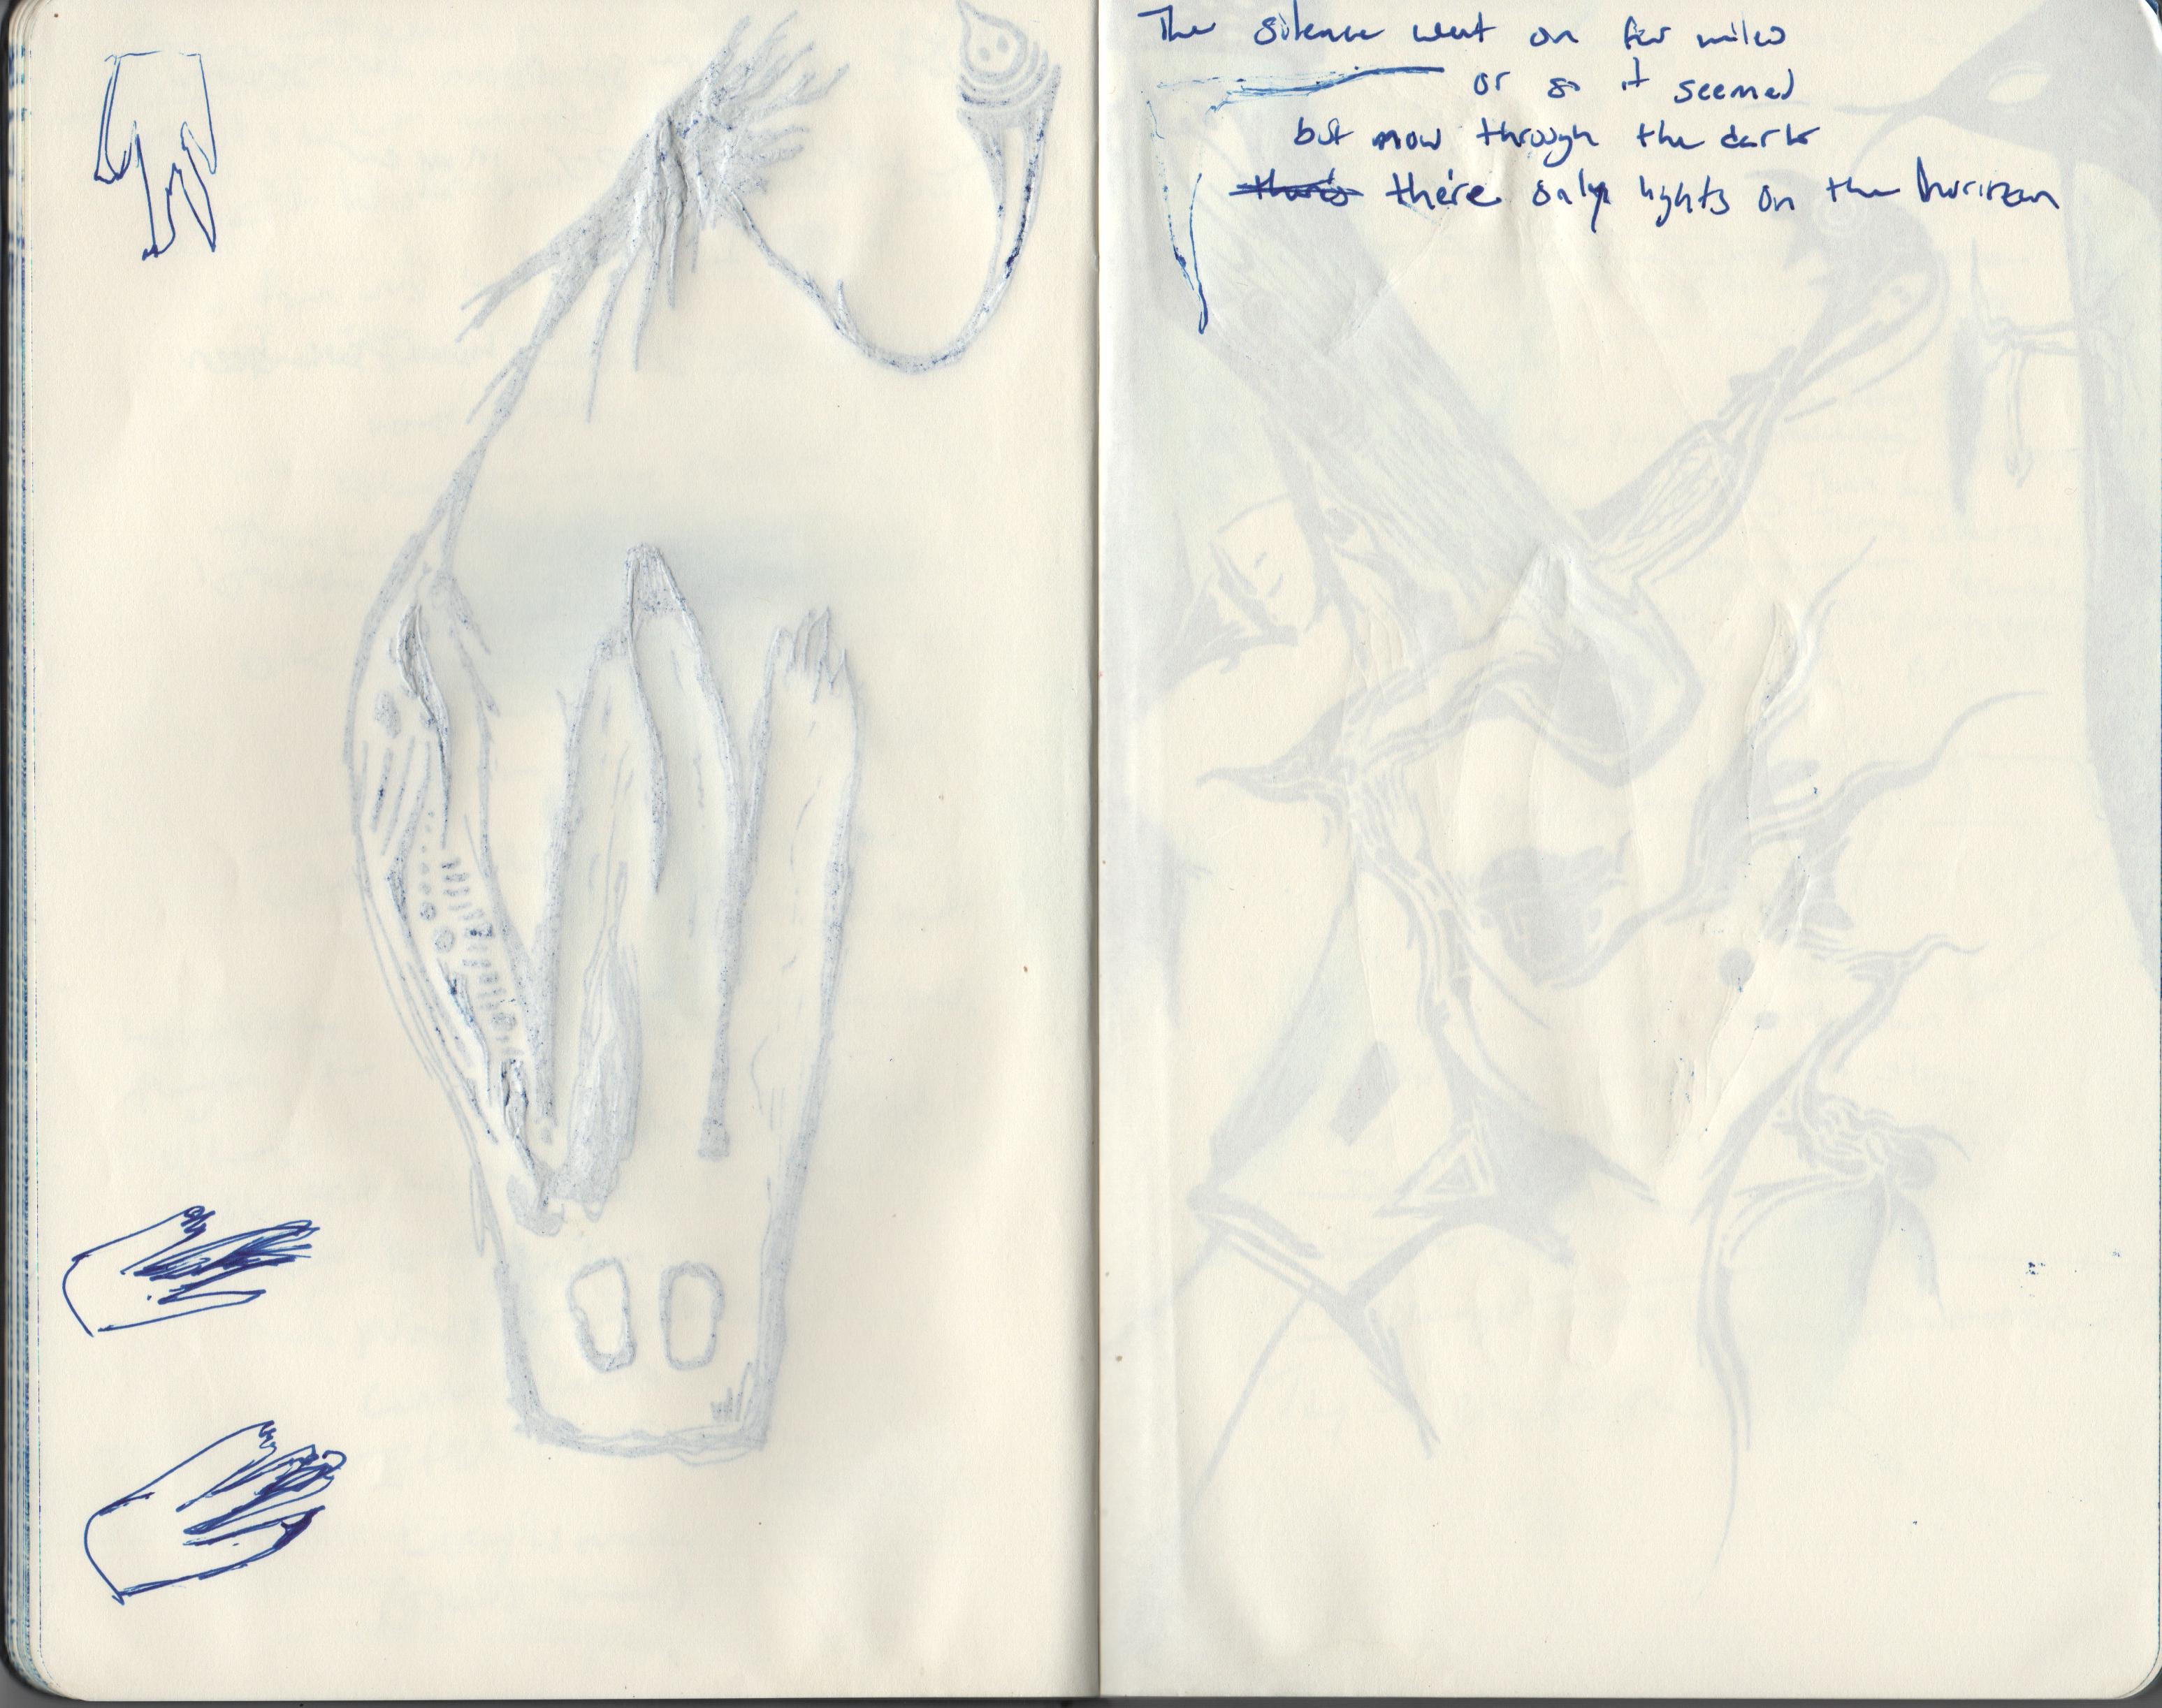 The silence went on for miles
or so it seemed
but now through the dark
there's there only lights on the horizon